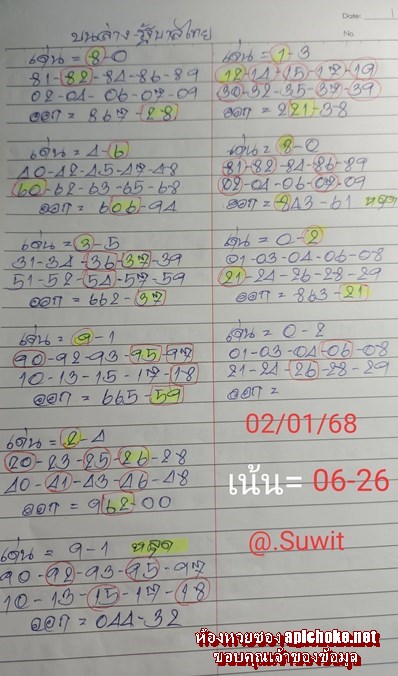 Date:
No.
บนล่าง รัฐบาลไทย
เด่น = 8-0
81-82-84-86-89
02-04-06-07-09
ออก = 867-28
เด่น = 4-6
40-42-45-47-48
60-62-63-65-68
ออก = 606-94
เด่น = 3-5
31-34-36-37-39
51-52-54-57-59
ออก = 662-37
เด่น = 9-1
90-92-93-95-97
10-13-15-17-18
ออก = 665-59
เด่น = 2-4
20-23-25-26-28
40-41-43-46-48
ออก = 962-00
เด่น = 9-1 หลุด
90-92-93-95-97
10-13-15-17-18
ออก = 044-32
เด่น = 1-3
12-14-15-17-19
30-32-35-37-39
ออก = 221-38
เด่น = 8-0
81-82-84-86-89
02-04-06-07-09
ออก = 843-61 หลุด
เด่น = 0-2
01-03-04-06-08
21-24-26-28-29
ออก = 863-21
เด่น = 0-2
01-03-04-06-08
21-24-26-28-29
ออก =
02/01/68
เน้น= 06-26
@.Suwit
ห้องหวยซอง apichoke.net
ขอบคุณเจ้าของข้อมูล